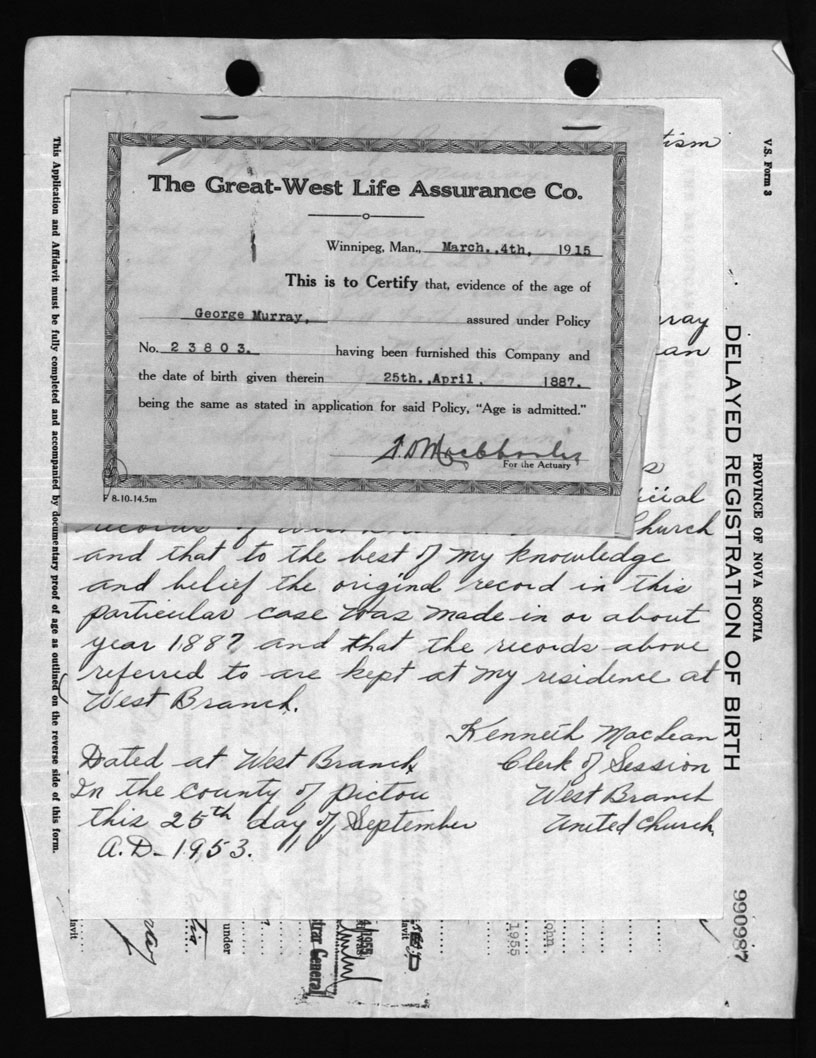 The Great-West Life Assurance Co.
Winnipeg, Man., March.,4th, 1915
This is to Certify that, evidence of the age of
George Murray, assured under Policy
No. 2 3 8 0 3. having been furnished this Company and
the date of birth given therein 25th. April. 1887.
being the same as stated in application for said Policy, "Age is admitted."
For the Actuary
F 8-10-14.5m
Church
and that to the best of my knowledge
and belief the original record in this
particular case was made in or about
year 1887 and that the records above
referred to are kept at my residence at
West Branch.
Kenneth MacLean
Clerk of Session
West Branch
United Church
Dated at West Branch
In the county of Pictou
this 25th day of September
A.D. 1953.
V.S. Form 3
PROVINCE OF NOVA SCOTIA
DELAYED REGISTRATION OF BIRTH
990987
This Application and Affidavit must be fully completed and accompanied by documentary proof of age as outlined on the reverse side of this form.
under
General
1955
John
1955